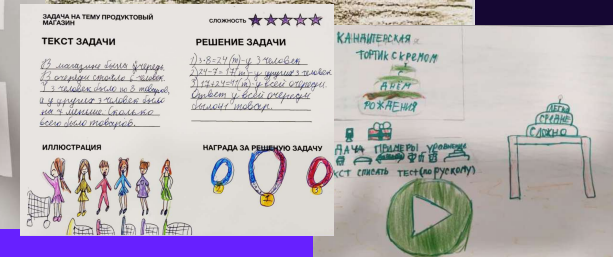 ЗАДАЧА НА ТЕМУ ПРОДУКТОВЫЙ
МАГАЗИН
СЛОЖНОСТЬ
ТЕКСТ ЗАДАЧИ
В магазине была очередь.
В очереди стояло 6 человек.
У 3 человек было по 8 товаров,
а у других 3 человек было
на 7 меньше. Сколько
всего было товаров.
РЕШЕНИЕ ЗАДАЧИ
1) 3·8=24(т)-у 3 человек
2) 24-7=17(т)-у других 3 человек
3) 17+24=41(т) у всей очереди.
Ответ у всей очереди
было 41 товар.
ИЛЛЮСТРАЦИЯ
НАГРАДА ЗА РЕШЕНУЮ ЗАДАЧУ
ТОРТИК С КРЕМОМ
ДНЕМ
РОЖДЕНИЯ
ДАЧА ПРИМЕРЫ УРАВНЕНИЕ
КСТ СПИСАТЬ ТЕСТ(ПО РУСКОМУ)
ЛЕГКО
СРЕДНЕ
СЛОЖНО